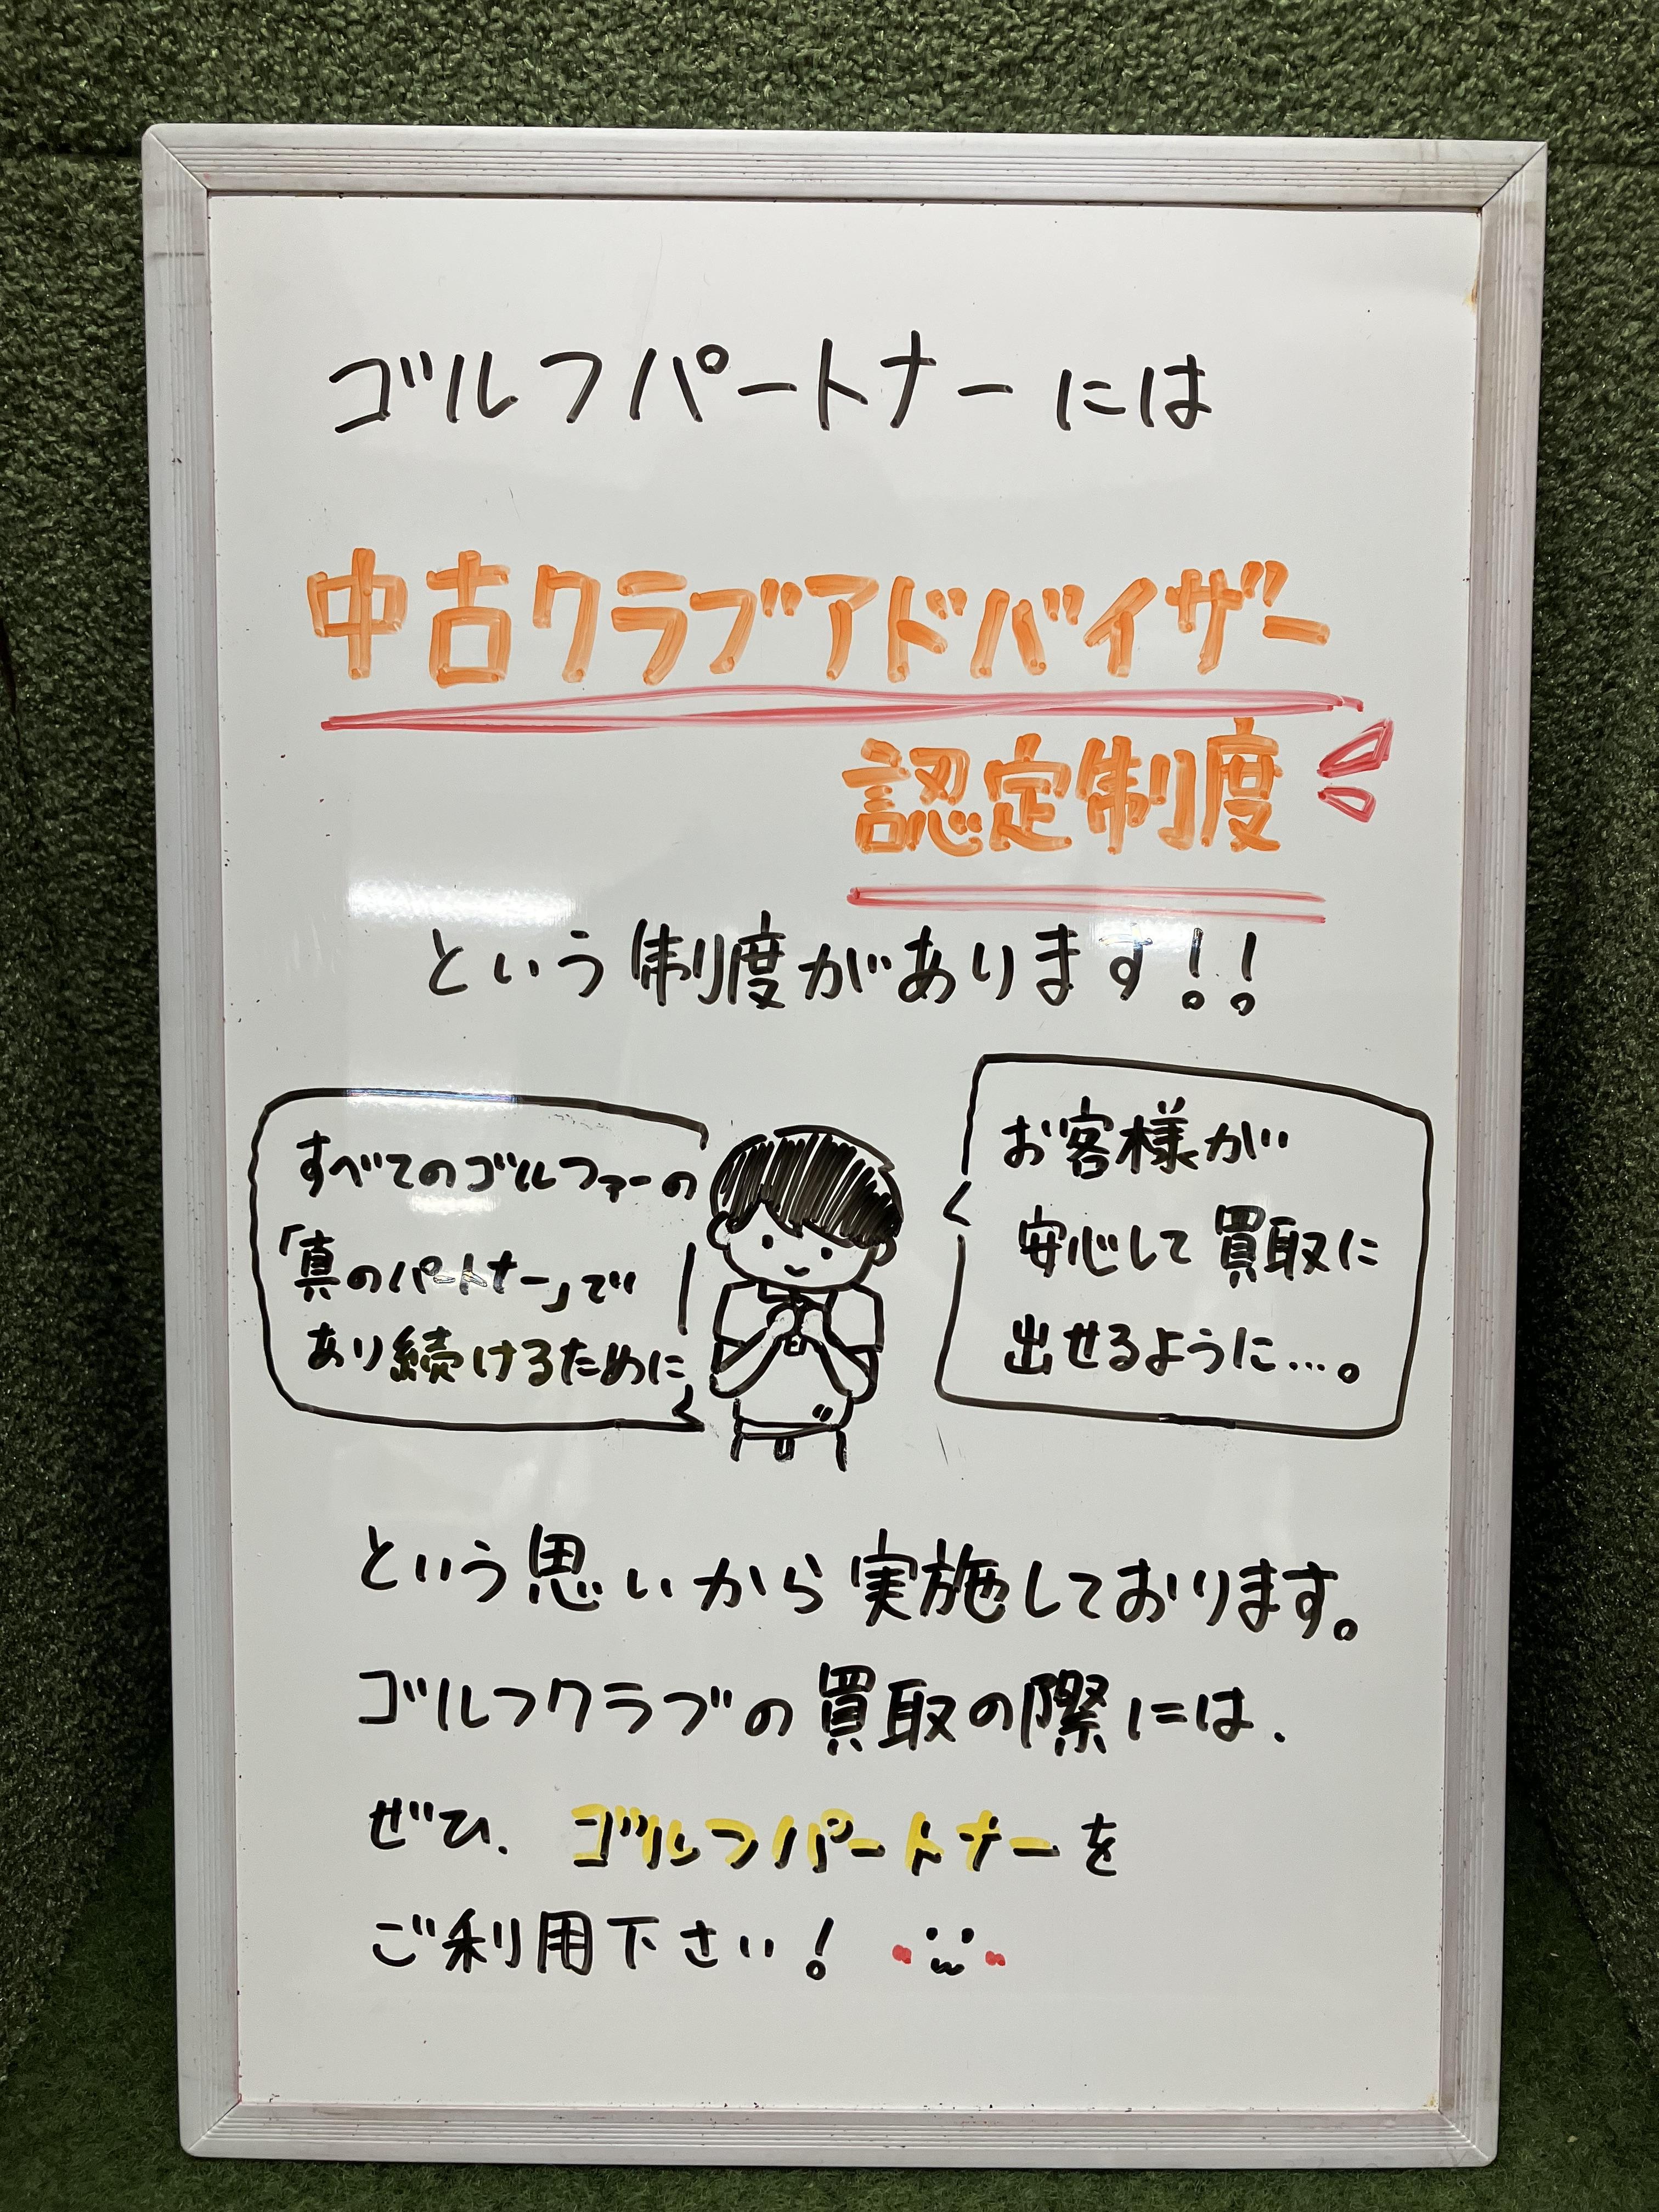 ゴルフパートナーには
中古クラブアドバイザー
認定制度
という制度があります!!
すべてのゴルファーの
「真のパートナー」で
あり続けるために
お客様が
安心して買取に
出せるように…。
という思いから実施しております。
ゴルフクラブの買取の際には、
ぜひ、ゴルフパートナーを
ご利用下さい!